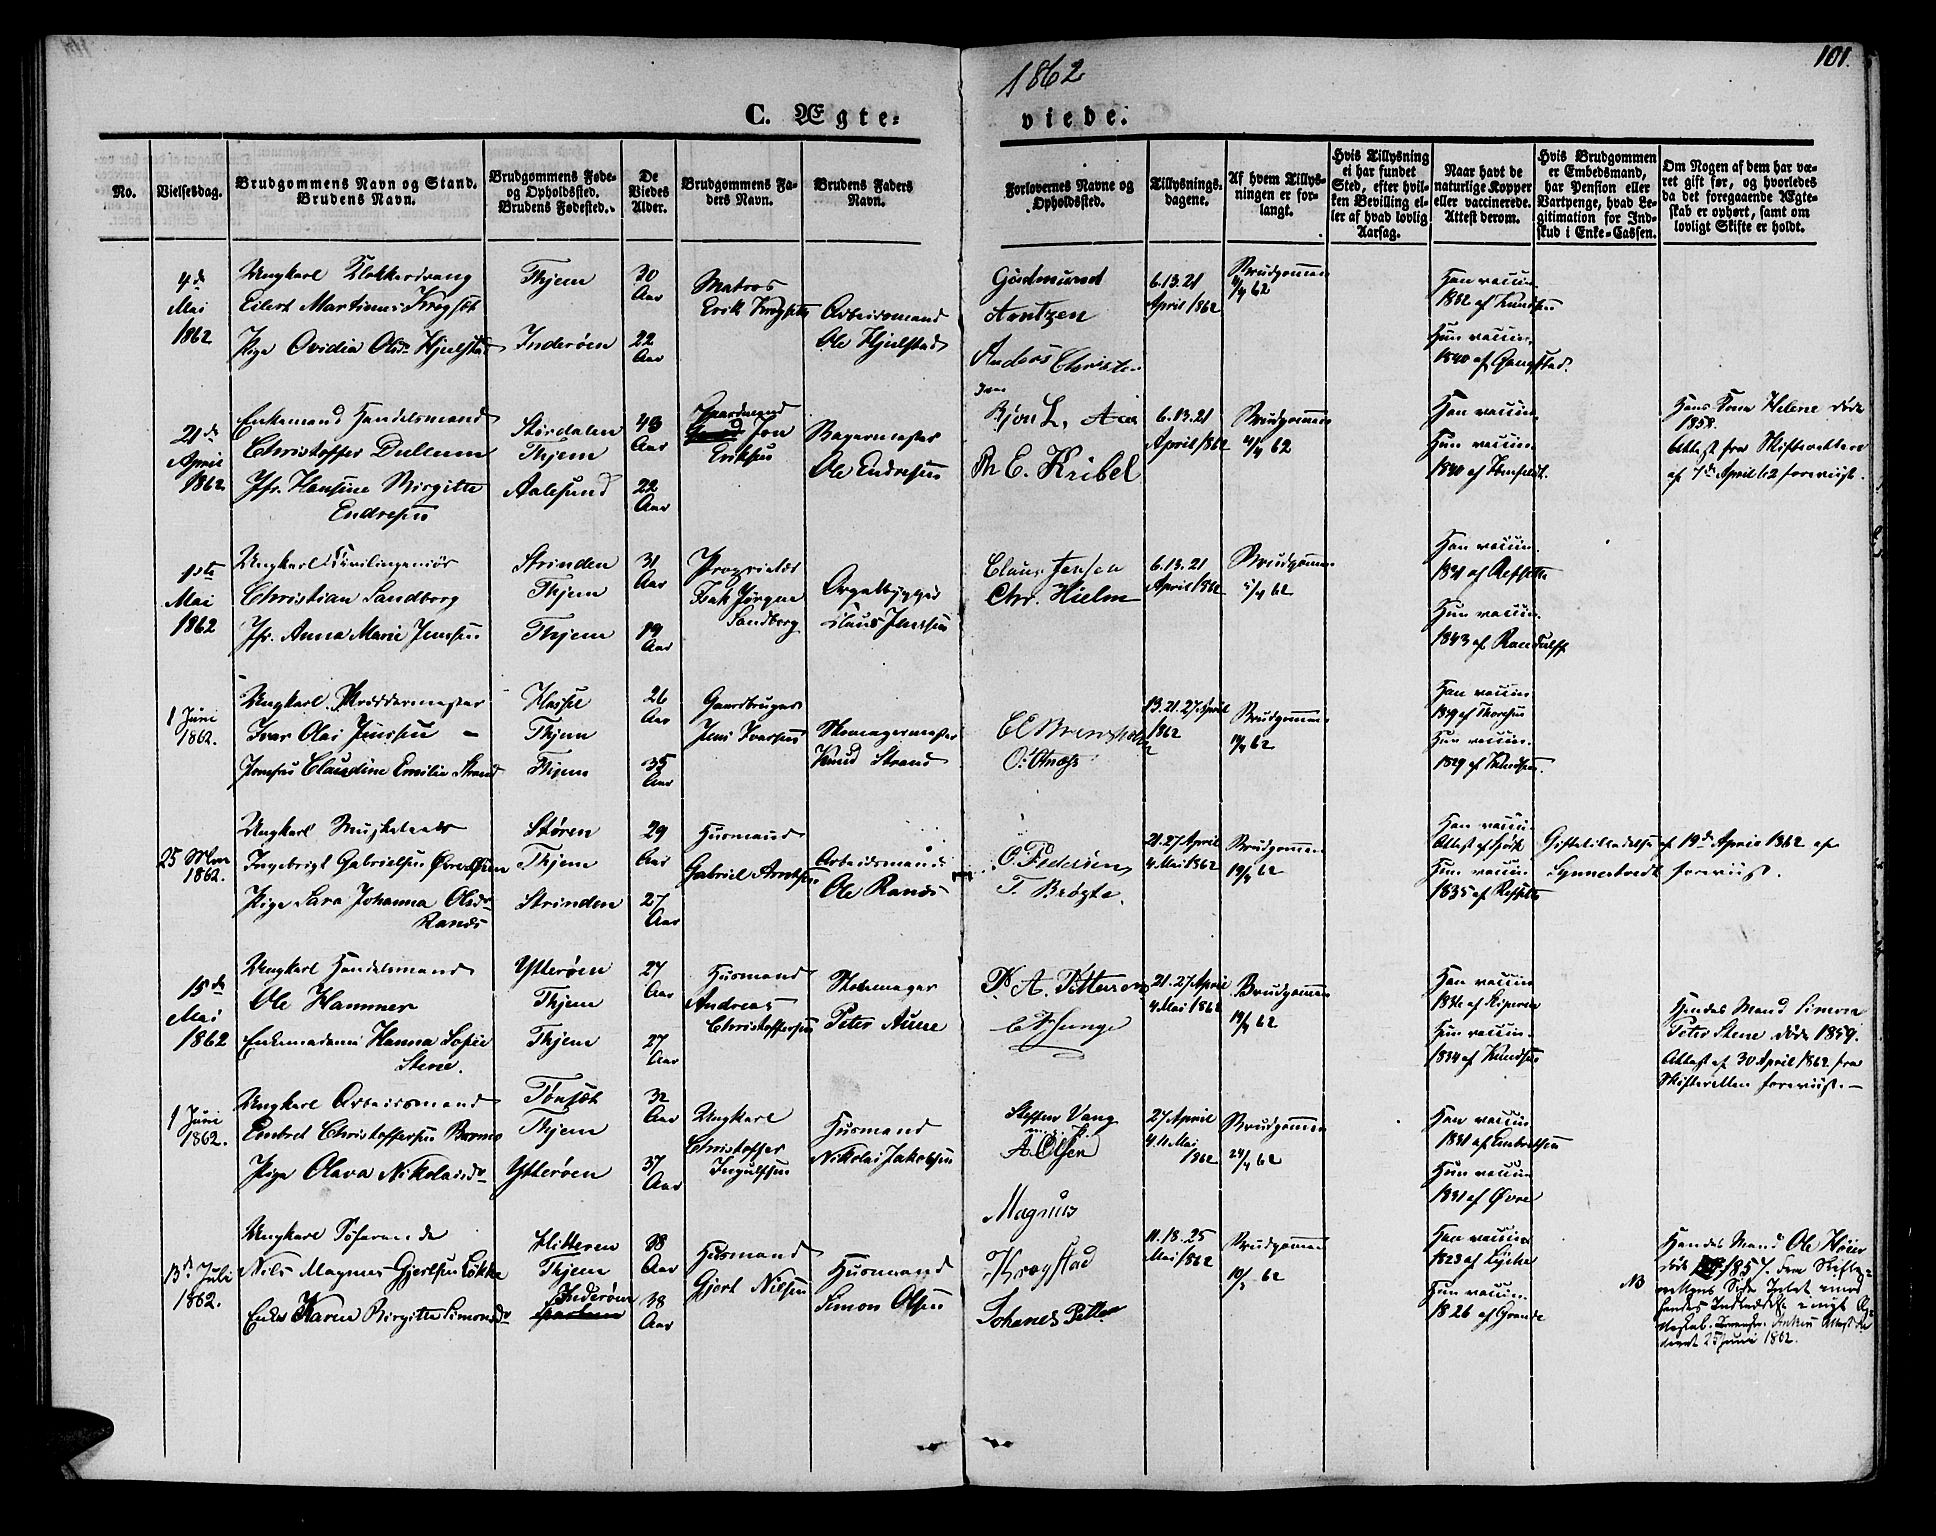 101.
1862
C. Ægte-
viede.
No.
Vielsesdag.
Brudgommens Navn og Stand.
Brudens Navn.
Brudgommens Føde-
og Opholdssted.
Brudens Fødested.
De
Viedes
Alder.
Brudgommens Fa-
ders Navn.
Brudens Faders
Navn.
Forlovernes Navne og
Opholdssted.
Tillysnings-
dagene.
Af hvem Tillys-
ningen er for-
langt.
Hvis Tillysning
ei har fundet
Sted, efter hvil-
ken Bevilling el-
ler af hvad lovlig
Aarsag.
Naar havt de
naturlige Kopper
eller vaccinerede.
Attest derom.
Hvis Brudgommen
er Embedsmand,
har Pension eller
Vartpenge, hvad Le-
gitimation for Ind-
skud i Enke-Cassen.
Om Nogen af dem har væ-
ret gift før, og hvorledes
da det foregaaende Ægte-
skab er ophørt, samt om
lovligt Skifte er holdt.
4de
Mai
1862
Ungkarl Klokkerdreng
Eilert Martinus Krogset
Pige Ovidia Olsdr Hjulstad
Thjem
Inderøen
30
Aar
22
Aar
Matros
Erik Krogseth
Arbeidsmand
Ole Hjulstad
Gudmund
Arntzen
Anders Christen
sen
6.13.21
April 1862
Brudgommen
4/4 62
Han vaccin.
1832 af Knudsen
Hun vaccin.
1840 af Gangstad.
21de
April
1862
Enkemand Handelsmand
Christoffer Dullum
Jfr. Hansine Birgitte
Endresen
Størdalen
Thjem
Aalesund
43
Aar
22
Aar
Gaardmand
Jon
Eriksen
Bagermester
Ole Endresen
Bjørn L. Aas
Th E. Kribel
6.13.21
April 1862
Brudgommen
4/4 62
Han vaccin.
Hun vaccin.
1840 af
Hans Kone Helene døde
1858.
Attest fra Skifteretten
af 7de April 62 foreviist.
1ste
Mai
1862
Ungkarl Civilingeniør
Christian Sandborg
Jfr. Anna Marie Jenssen
Strinden
Thjem
Thjem
31
Aar
19
Aar
Proprietær
Isak Jørgen
Sandborg
Orgelbygger
Claus Jenssen
Claus Jensen
Chr. Hielm
6.13.21
April 1862
Brudgommen
5/4 62
Han vaccin.
1831 af
Hun vaccin.
1843 af Randulff
1 Juni
1862.
Ungkarl
Ivar Olai Jenssen
Jomfru Claudine Emilie Strand
Thjem
Thjem
26
Aar
35
Aar
Gaardbruger
Jens Ivarsen
Skomagermester
Knud Strand
13.21.27 April
1862
Brudgommen
62
Han vaccin.
1839 af Thoresen
Hun vaccin.
1829 af Knudsen.
25 Mai
1862.
Ungkarl Musketeer
Ingebrigt Gabrielsen
Pige Sara Johanna Olsdr
Rands
Støren
Thjem
Strinden
29
Aar
27
Aar
Husmand
Gabriel Arntsen
Arbeidsmand
Ole Rands
O. Pedersen
T. Brøgte.
21.27 April
4 Mai 1862
Brudgommen
19/4 62
Han vaccin.
Attest af
Hun vaccin.
1835 af
Giftetilladelse af 19de April 1862 af
foreviist.
15de
Mai
1862
Ungkarl Handelsmand
Ole Hammer
Enkemadame Hanna Sofie
Stene.
Ytterøen
Thjem
Thjem
27
Aar
27
Aar
Husmand
Andreas
Christoffersen
Skomager
Peter Aune
P. A. Pettersen
21.27 April
4 Mai 1862
Brudgommen
19/4 62
Han vaccin.
1836 af
Hun vaccin.
1834 af Knudsen
Hendes Mand Simon
Peter Stene døde 1859.
Attest af 30 April 1862 fra
Skifteretten foreviist. —
1 Juni
1862.
Ungkarl Arbeidsmand
Embret Christoffersen
Pige Olava Nikolaisdr
Tønset
Thjem
Ytterøen
32
Aar
37
Aar
Ungkarl
Christoffer
Ingulfsen
Husmand
Nikolai Jakobsen
Steffen Vang
A. Olsen
27 April
4.11. Mai
1862
Brudgommen
24/4 62
Han vaccin.
1831 af Embretsen
Hun vaccin.
1831 af Øvre
13de Juli
1862.
Ungkarl Søfarende
Nils Magnus Gjertsen Løkke
Enke Karen Birgitte Simonsdr
Hitteren
Thjem
Inderøen
38
Aar
38
Aar
Husmand
Gjert Nilsen
Husmand
Simon Olsen
Magnus
Krogstad
Johanes Petter
11.18.25
Mai 1862
Brudgommen
10/5 62
Han vaccin.
1823 af Lyche
Hun vaccin.
1826 af Grande
NB
Hendes Mand Ole Høier
død 1857.
25 Juni 1862.